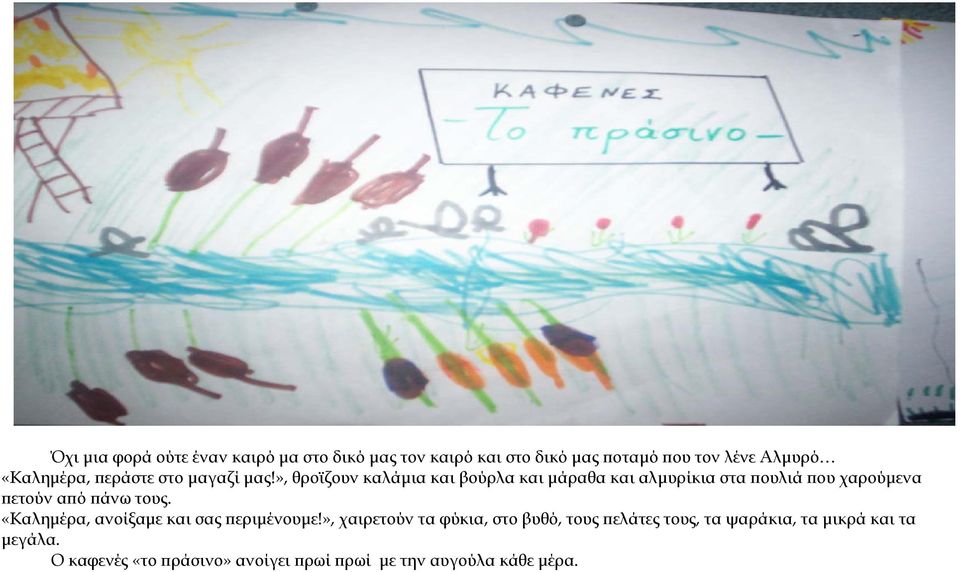 ΚΑΦΕΝΕΣ
- Το πράσινο -
Όχι μια φορά ούτε έναν καιρό μα στο δικό μας τον καιρό και στο δικό μας ποταμό που τον λένε Αλμυρό…
«Καλημέρα, περάστε στο μαγαζί μας!», θροΐζουν καλάμια και βούρλα και μάραθα και αλμυρίκια στα πουλιά που χαρούμενα
πετούν από πάνω τους.
«Καλημέρα, ανοίξαμε και σας περιμένουμε!», χαιρετούν τα φύκια, στο βυθό, τους πελάτες τους, τα ψαράκια, τα μικρά και τα
μεγάλα.
Ο καφενές «το πράσινο» ανοίγει πρωί πρωί με την αυγούλα κάθε μέρα.